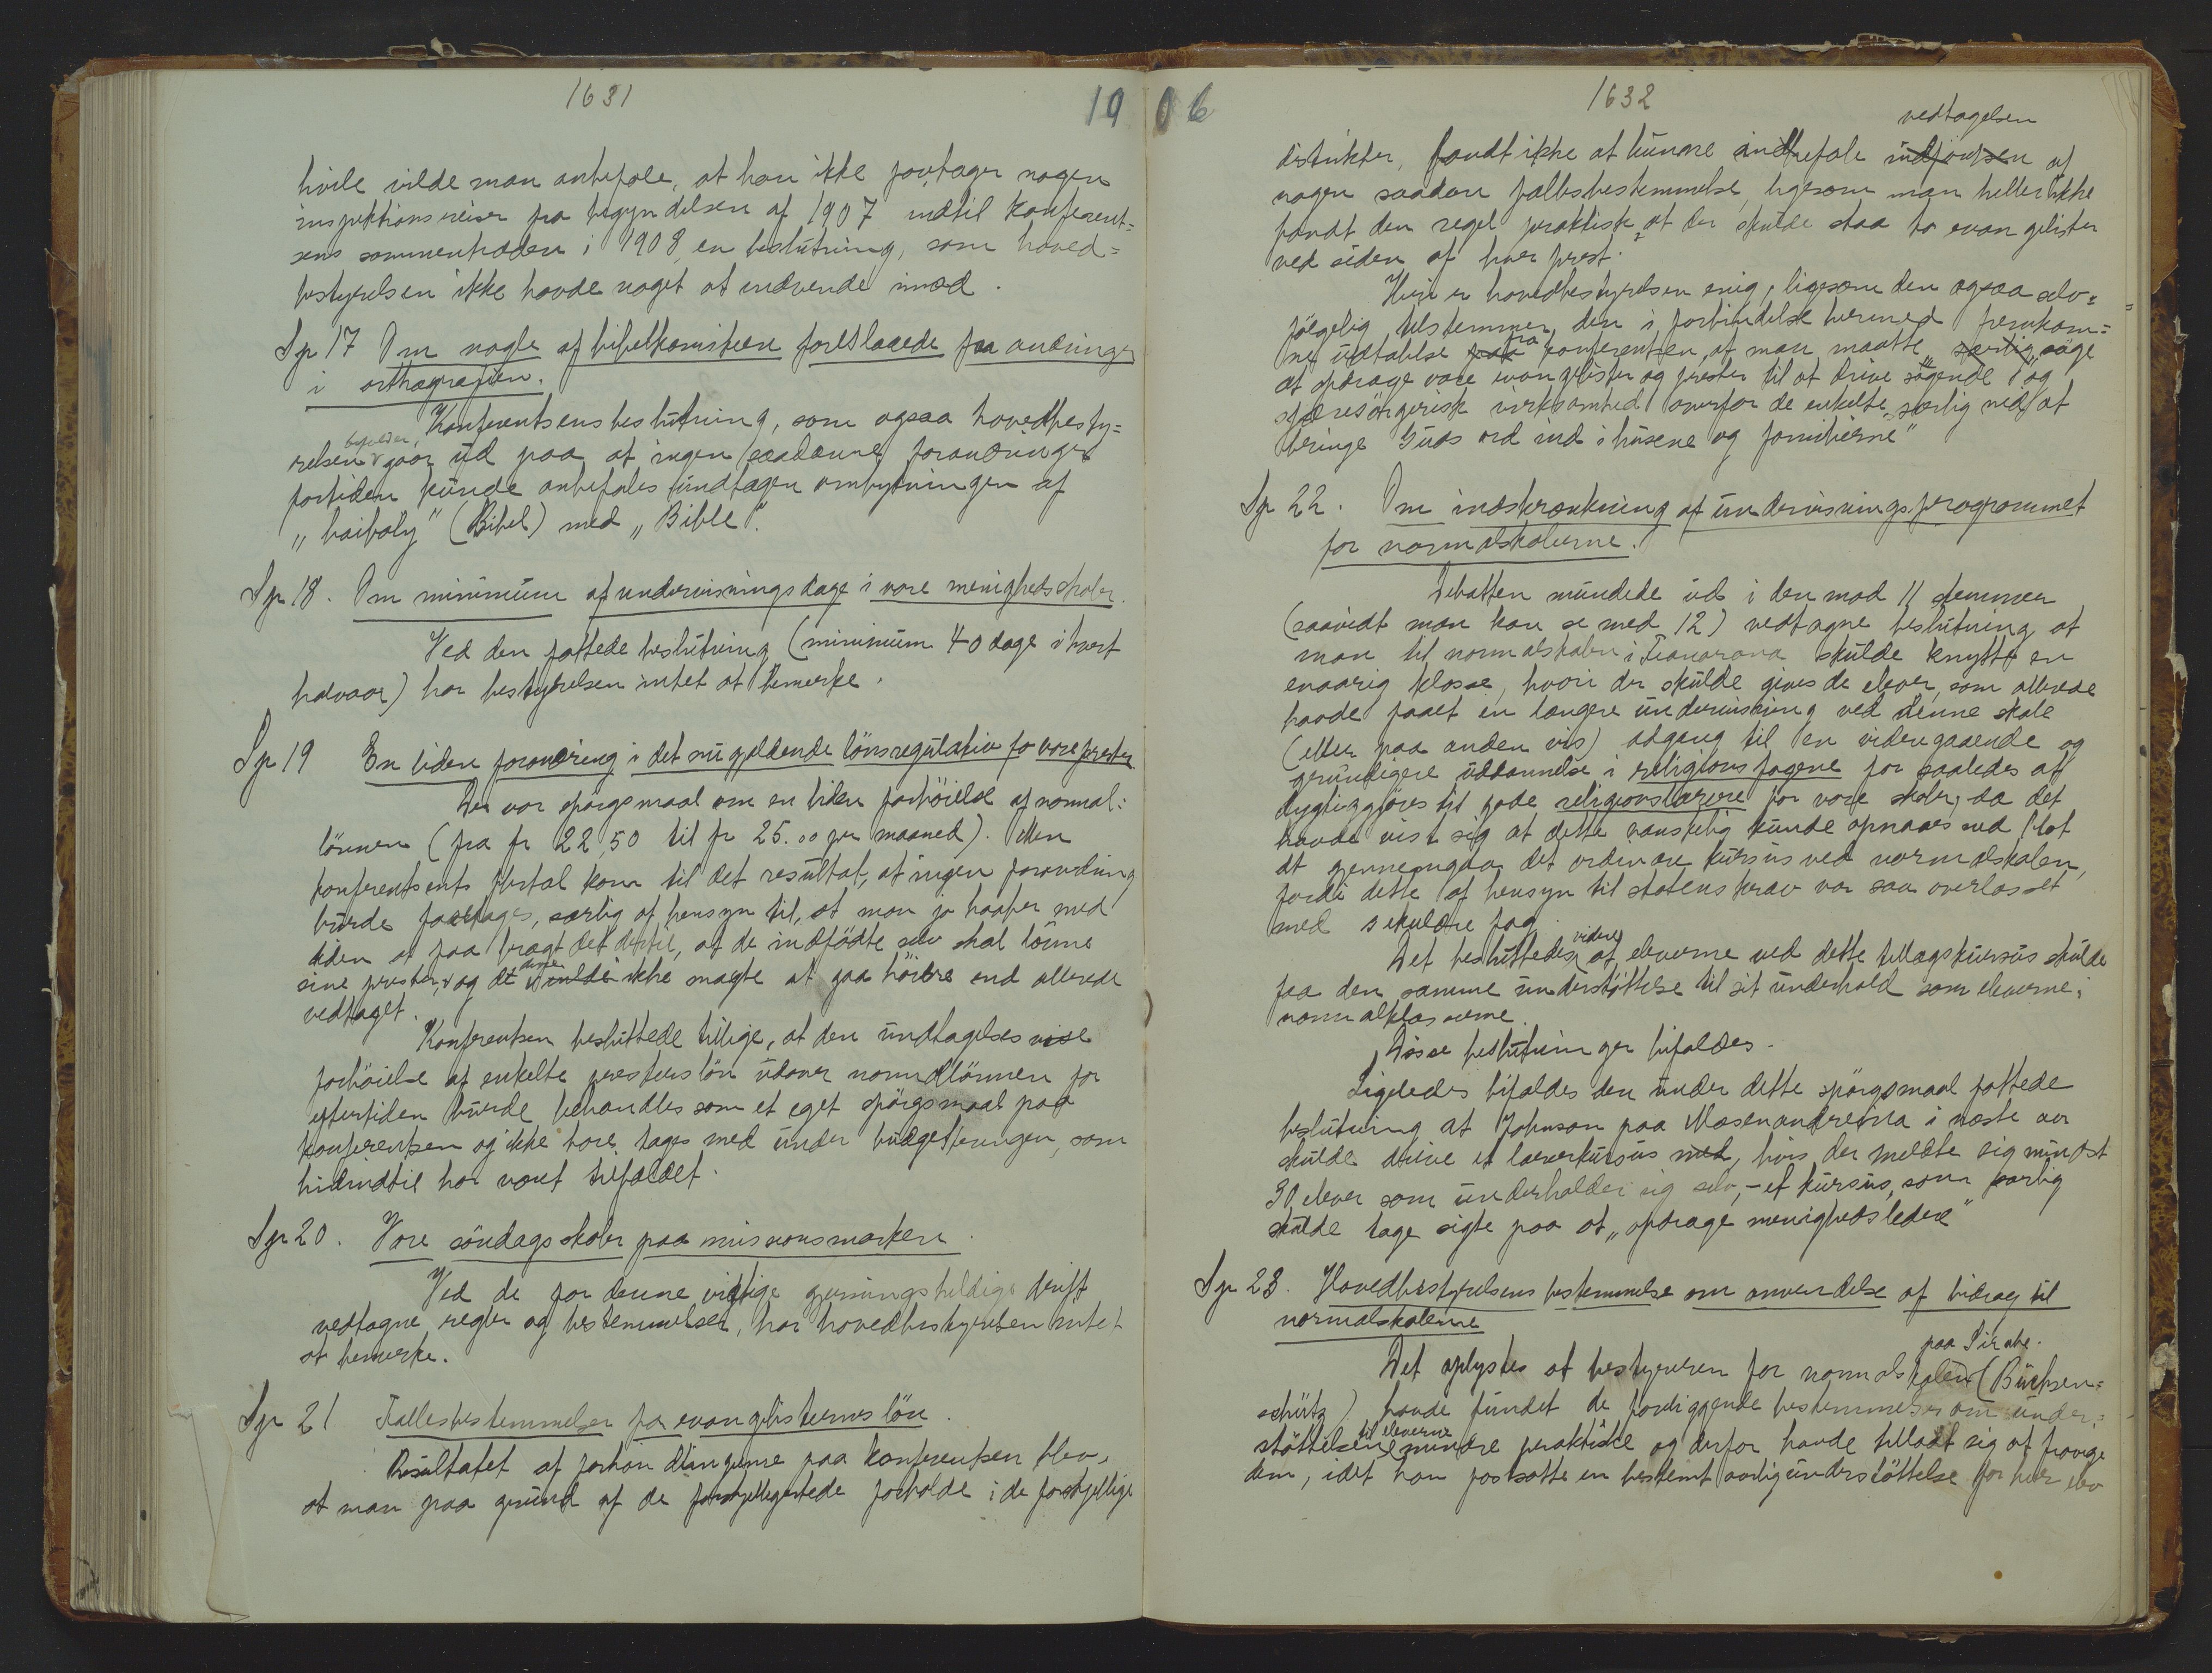 1631
19
hvile vilde man anbefale, at han ikke foretager nogen
inspektionsreiser fra begyndelsen af 1907 indtil konferent=
sens sammentræden i 1908, en beslutning, som hoved=
bestyrelsen ikke havde noget at indvende imod.
Sp 17 Om nogle af bibelkomiteen foreslaaede forandringer
i orthografien.
Konferentsens beslutning, som ogsaa hovedbesty=
relsen bifalder, gaar ud paa at ingen saadanne forandringer
fortiden kunde anbefales undtagen ombytningen af
„baiboly" (Bibel) med „Bible".
Sp 18. Om minimum af undervisningsdage i vore menighedsskoler.
Ved den fattede beslutning (minimum 40 dage i hvert
halvaar) har bestyrelsen intet at bemerke.
Sp 19 En liden forandring i det nu gjeldende lönsregulativ for vore prester.
Der var spörgsmaal om en liden forhöielse af normal=
lönnen (fra fr 22,50 til fr 25.00 per maaned). Men
konferentsens flertal kom til det resultat, at ingen forandring
burde foretages, særlig af hensyn til, at man jo haaber med
tiden at faa bragt det dertil, at de indfödte selv skal lönne
sine prester, og at disse vilde ikke magte at gaa höiere end allerede
vedtaget.
Konferentsen besluttede tillige, at den undtagelsesvise
forhöielse af enkelte presters lön udover normallönnen for
eftertiden burde behandles som et eget spörgsmaal paa
konferentsen og ikke bare tages med under budgetteringen, som
hidindtil har været tilfældet.
Sp 20. Vore söndagsskoler paa missionsmarken.
Ved de for denne vigtige gjernings heldige drift
vedtagne regler og bestemmelser, har hovedbestyrelsen intet
at bemerke.
Sp 21 Fællesbestemmelser for evangelisternes lön.
Resultatet af forhandlingerne paa konferentsen blev,
at man paa grund af de forskjelligartede forholde i de forskjellige
06
1632
vedtagelsen
distrikter, fandt ikke at kunne anbefale indförelsen af
nogen saadan fællesbestemmelse, ligesom man heller ikke
fandt den regel praktisk, at der skulde staa to evangelister
ved siden af hver prest.
Heri er hovedbestyrelsen enig, ligesom den ogsaa selv=
fölgelig tilstemmer, den i forbindelse hermed fremkom=
ne udtalelse fra konferentsen, at man maatte særlig „söge
at opdrage vore evangelister og prester til at drive „sögende" og
sjælesörgerisk virksomhed overfor de enkelte, særlig ved at
bringe Guds ord ind i husene og familierne"
Sp 22. Om indskrænkning af undervisningsprogrammet
for normalskolerne.
Debatten mundede ud i den mod 11 stemmer
(saavidt man kan se med 12) vedtagne beslutning at
man til normalskolen i Fianarana skulde knytte en
enaarig klasse, hvori der skulde gives de elever, som allerede
havde faaet en længere undervisning ved denne skole
(eller paa anden vis) adgang til en videregaaende og
grundigere uddannelse i religionsfagene for saaledes at
dygtiggjöres til gode religionslærere for vore skoler, da det
havde vist sig at dette vanskelig kunde opnaaes ved blot
at gjennemgaa det ordinære kursus ved normalskolen,
fordi dette af hensyn til statens krav var saa overlæsset
med sekulære fag.
Det besluttedes videre, at eleverne ved dette tillægskursus skulde
faa den samme understöttelse til sit underhold som eleverne i
normalklasserne.
Disse beslutninger bifaldes.
Ligeledes bifaldes den under dette spörgsmaal fattede
beslutning at Johnson paa Masenandreina i næste aar
skulde drive et lærerkursus med, hvis der meldte sig mindst
30 elever som underholder sig selv, - et kursus, som særlig
skulde tage sigte paa at „opdrage menighedsledere"
Sp 23. Hovedbestyrelsens bestemmelse om anvendelse af bidrag til
normalskolerne
paa Sirabe.
Det oplystes at bestyreren for normalskolen (Büchsen=
schütz) havde fundet de foreliggende bestemmelser om under=
stöttelsen til eleverne mindre praktiske og derfor havde tilladt sig at fravige
dem, idet han fastsatte en bestemt aarlig understöttelse for hver elev